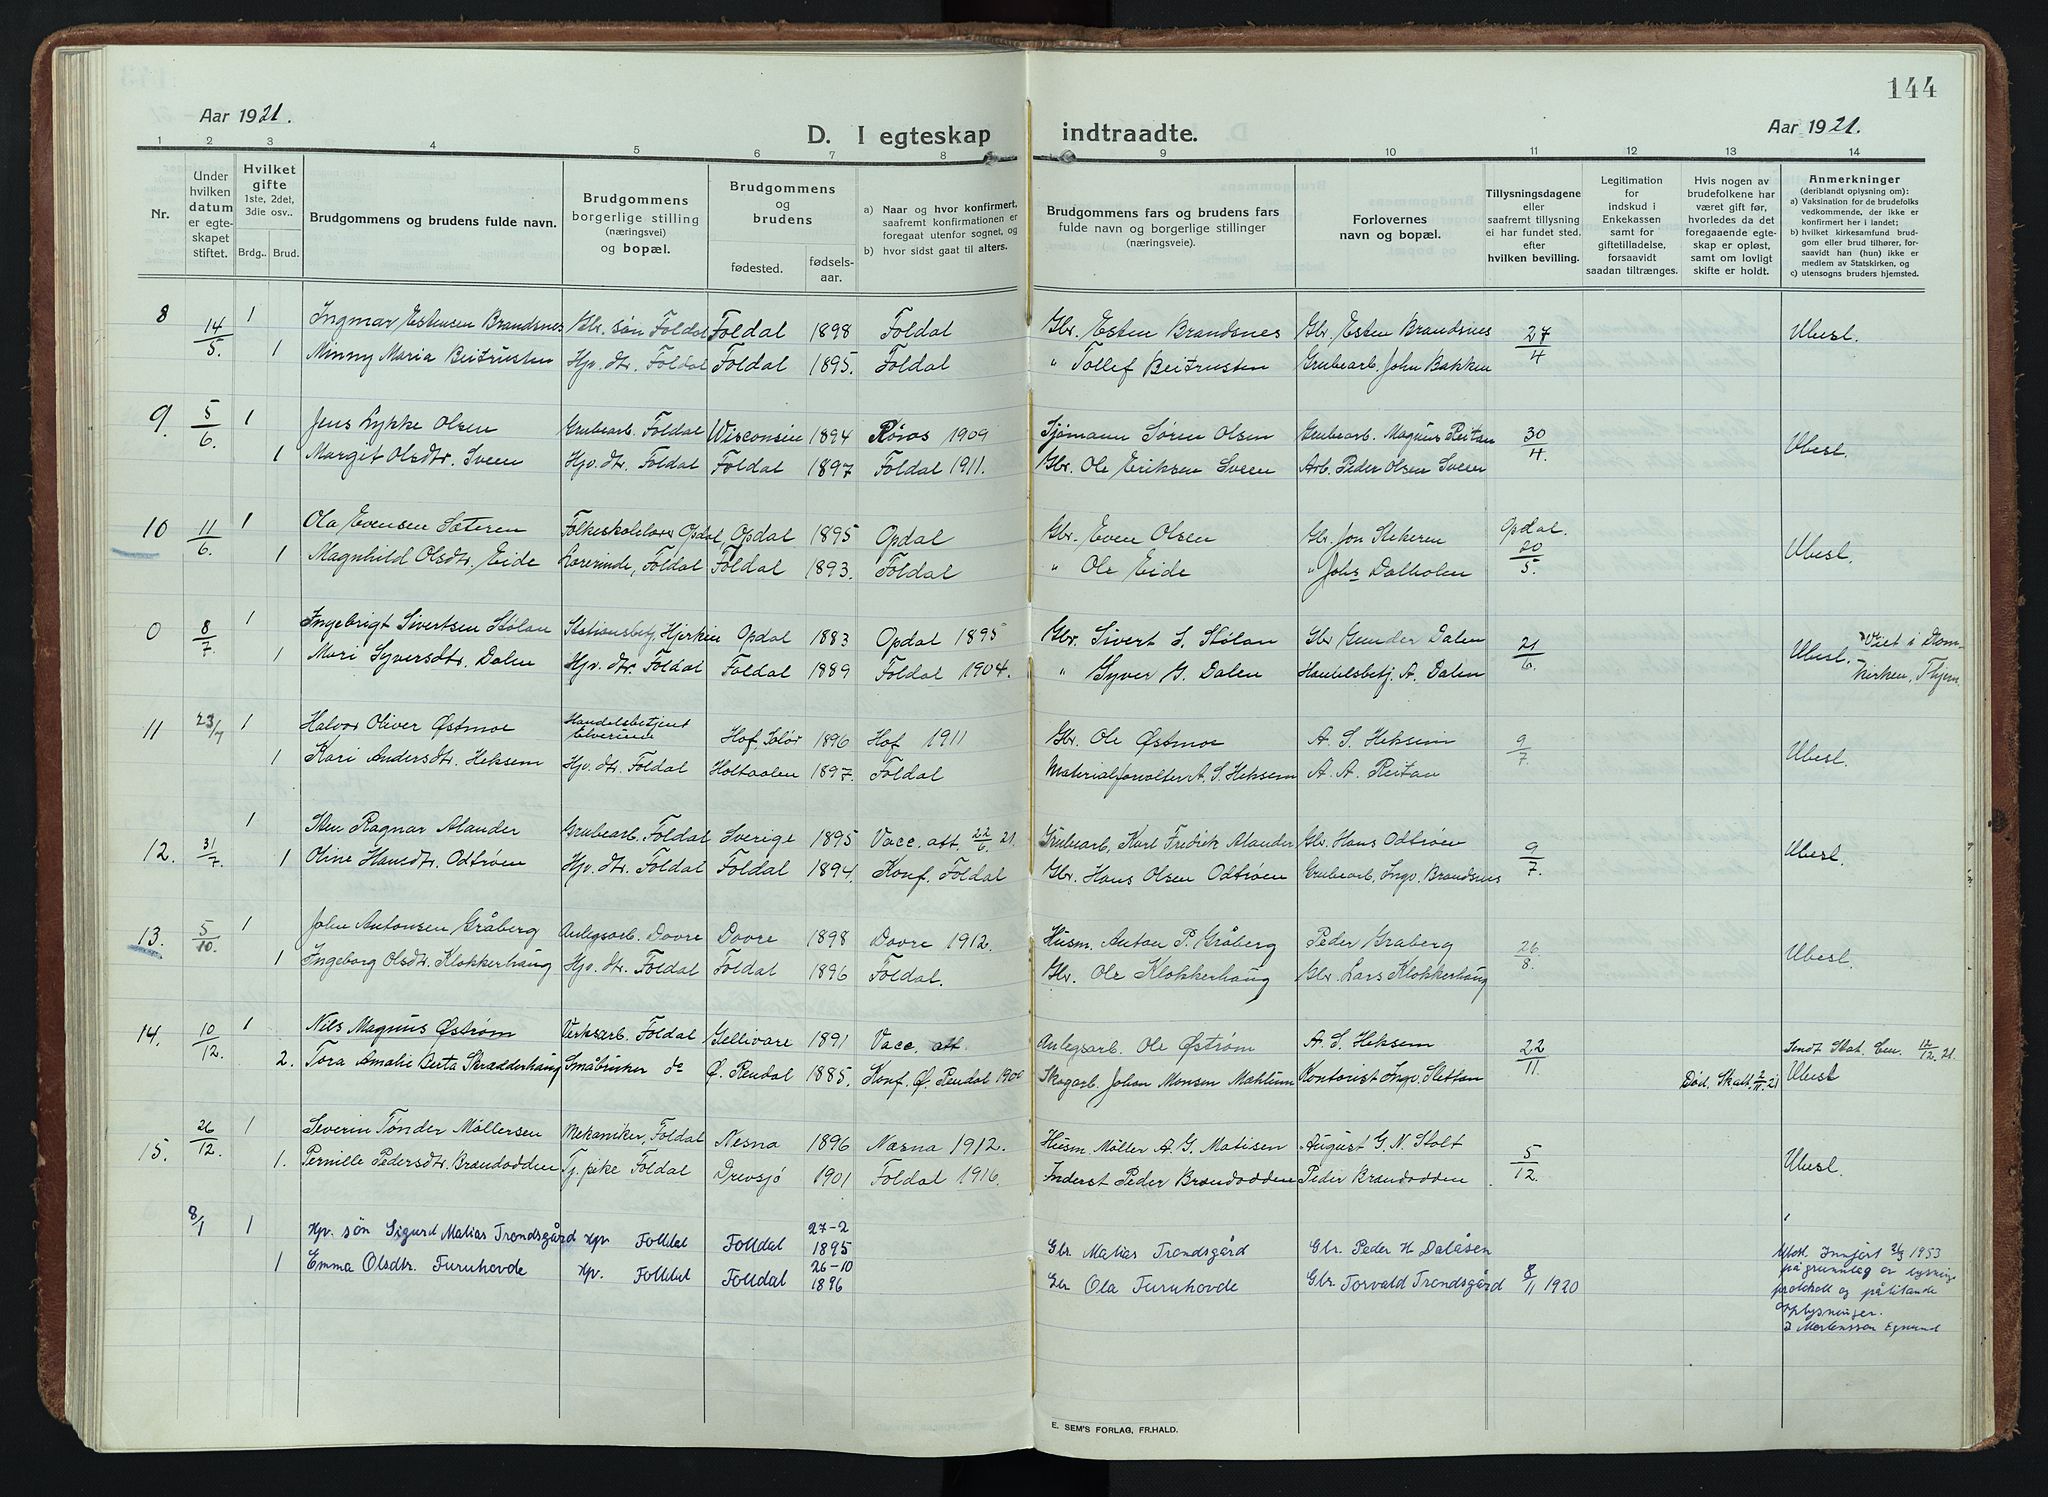 144
Aar 1921.
D. I egteskap indtraadte.
Aar 1921.
1 2 3 4 5 6 7 8 9 10 11 12 13 14
Nr.
Under hvilken datum er egteskapet stiftet.
Hvilket gifte 1ste, 2det, 3die osv..
Brdg.. Brud.
Brudgommens og brudens fulde navn.
Brudgommens borgerlige stilling (næringsvei) og bopæl.
Brudgommens og brudens
fødested. fødselsaar.
a) Naar og hvor konfirmert, saafremt konfirmationen er foregaat utenfor sognet, og
b) hvor sidst gaat til alters.
Brudgommens fars og brudens fars fulde navn og borgerlige stillinger (næringsveie).
Forlovernes navn og bopæl.
Tillysningsdagene eller saafremt tillysning ei har fundet sted, efter hvilken bevilling.
Legitimation for indskud i Enkekassen samt for giftetilladelse, forsaavidt saadan tiltrænges.
Hvis nogen av brudefolkene har været gift før, hvorledes da det foregaaende egteskap er opløst, samt om lovligt skifte er holdt.
Anmerkninger (deriblandt oplysning om):
a) Vaksination for de brudefolks vedkommende, der ikke er konfirmert her i landet;
b) hvilket kirkesamfund brudgom eller brud tilhører, forsaavidt han (hun) ikke er medlem av Statskirken, og
c) utensogns bruders hjemsted.
8 14/5. 1 Ingmar Estensen Brandsnes Gbr. søn Foldal Foldal 1898 Foldal Gbr. Esten Brandsnes Gbr. Esten Brandsnes 27/4 Ubesl.
1 Minny Maria Beitrusten Hjv. dtr. Foldal Foldal 1895. Foldal " Tollef Beitrusten Grubearb. John Bakken
9. 5/6 1 Jens Lykke Olsen Grubearb. Foldal Wisconsin 1894 Røros 1909 Sjømann Sören Olsen Grubearb. Magnus Reitan 30/4. Ubesl.
1 Margit Olsdtr. Sveen Hjv. dtr. Foldal Foldal 1897 Foldal 1911. Gbr. Ole Eriksen Sveen Arb. Peder Olsen Sveen
10 11/6. 1 Ola Evensen Sæteren Folkeskolelærer Opdal, Opdal 1895 Opdal Gbr. Even Olsen Gbr. Jon Stekeren Opdal. 20/5. Ubesl.
1 Magnhild Olsdtr. Eide Lærerinde, Foldal Foldal 1893. Foldal " Ole Eide " Johs Dalholen
0 8/7 1 Ingebrigt Sivertsen Stølan Stationsbetj. Hjerkin Opdal 1883 Opdal 1895 Gbr. Sivert S. Stølan Gbr Gunder Dalen 21/6. Ubesl. Viet i Domkirken, Thjem.
1 Mari Syversdtr. Dalen Hjv. dtr. Foldal Foldal 1889 Foldal 1904. " Syver G. Dalen Handelsbetj. A. Dalen
11 23/7 1 Halvor Oliver Østmoe Handelsbetjent Elverum Hof, Solør 1896 Hof 1911 Gbr. Ole Østmoe A. S. Heksem 9/7. Ubesl.
1 Kari Andersdtr. Heksem Hjv. dtr. Foldal Holtaalen 1897. Foldal Materialforvalter A. S. Heksem A. A. Reitan
12. 31/7. 1 Sten Ragnar Alander Grubearb. Foldal Sverige 1895 Vacc. att. 22/6 21. Grubearb. Karl Fredrik Alander Gbr. Hans Odtrøen 9/7. Ubesl.
1 Oline Hansdtr. Odtrøen Hjv. dtr. Foldal Foldal 1894. Konf. Foldal Gbr. Hans Olsen Odtrøen Grubearb. Ingv. Brandsnes
13. 5/10. 1 John Antonsen Gråberg Anlegsarb. Dovre Dovre 1898 Dovre 1912. Husm. Anton P. Gråberg Peder Graberg 26/8. Ubesl.
1 Ingeborg Olsdtr. Klokkerhaug Hjv. dtr. Foldal Foldal 1896 Foldal. Gbr. Ole Klokkerhaug Gbr. Lars Klokkerhaug
14. 10/12. 1 Nils Magnus Østrøm Verksarb. Foldal Gellivare 1891 Vacc. att. Anlegsarb. Ole Østrøm A. S. Heksem 22/11. Sendt Stat. Cen. 12/12. 21.
2. Tora Amalie Berta Skrædderhaug Småbruker do Ø. Rendal 1885. Konf. Ø. Rendal 1900 Skogarb. Johan Monsen Mæhlum Kontorist Ingv. Slettan Død. Sk.att. 2/11. 21 Ubesl
15. 26/12. 1 Severin Tønder Møllersen Mekaniker, Foldal Nesna 1896 Næsna 1912. Husm. Møller A. G. Matisen August G. N. Stolt 5/12. Ubesl.
1. Pernille Pedersdtr. Brændodden Tj. pike Foldal Drevsjø 1901 Foldal 1916. Inderst Peder Brændodden Peder Brændodden
8/1 1 Hpv. søn Sigurd Matias Trondsgård Hpv Folldal Folldal 27-2 1895 Gbr. Matias Trondsgård Gbr. Peder H Dalåsen
1 Emma Olsdtr. Furuhovde Hpv. Folldal Folldal 26-10 1896 Gbr Ola Furuhovde Gbr Torvald Trondsgård 8/11 1920
Ubesl. Innført 2/3 1953
på grunnlag av lysnings
protokoll og pålitande
opplysninger.
Mortensson Egnund
E. SEM'S FORLAG, FR.HALD.